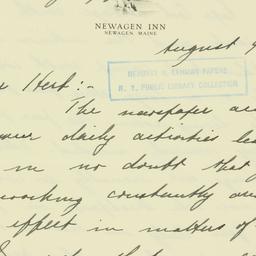 NEWAGEN INN
NEWAGEN, MAINE
August 9
Herb:-
HERBERT H. LEHMAN PAPERS
N. Y. PUBLIC LIBRARY COLLECTION
The newspaper
your daily activities
in no doubt that
working constantly
effect in matters of